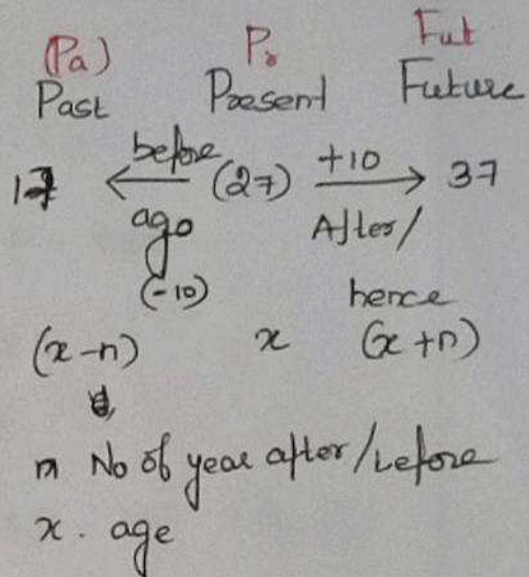 (Pa) Pr Fut
Past Present Future
before +10
17 ← (27) → 37
ago After/
(-10) hence
(x-n) x (x+n)
n No of year after/before
x. age